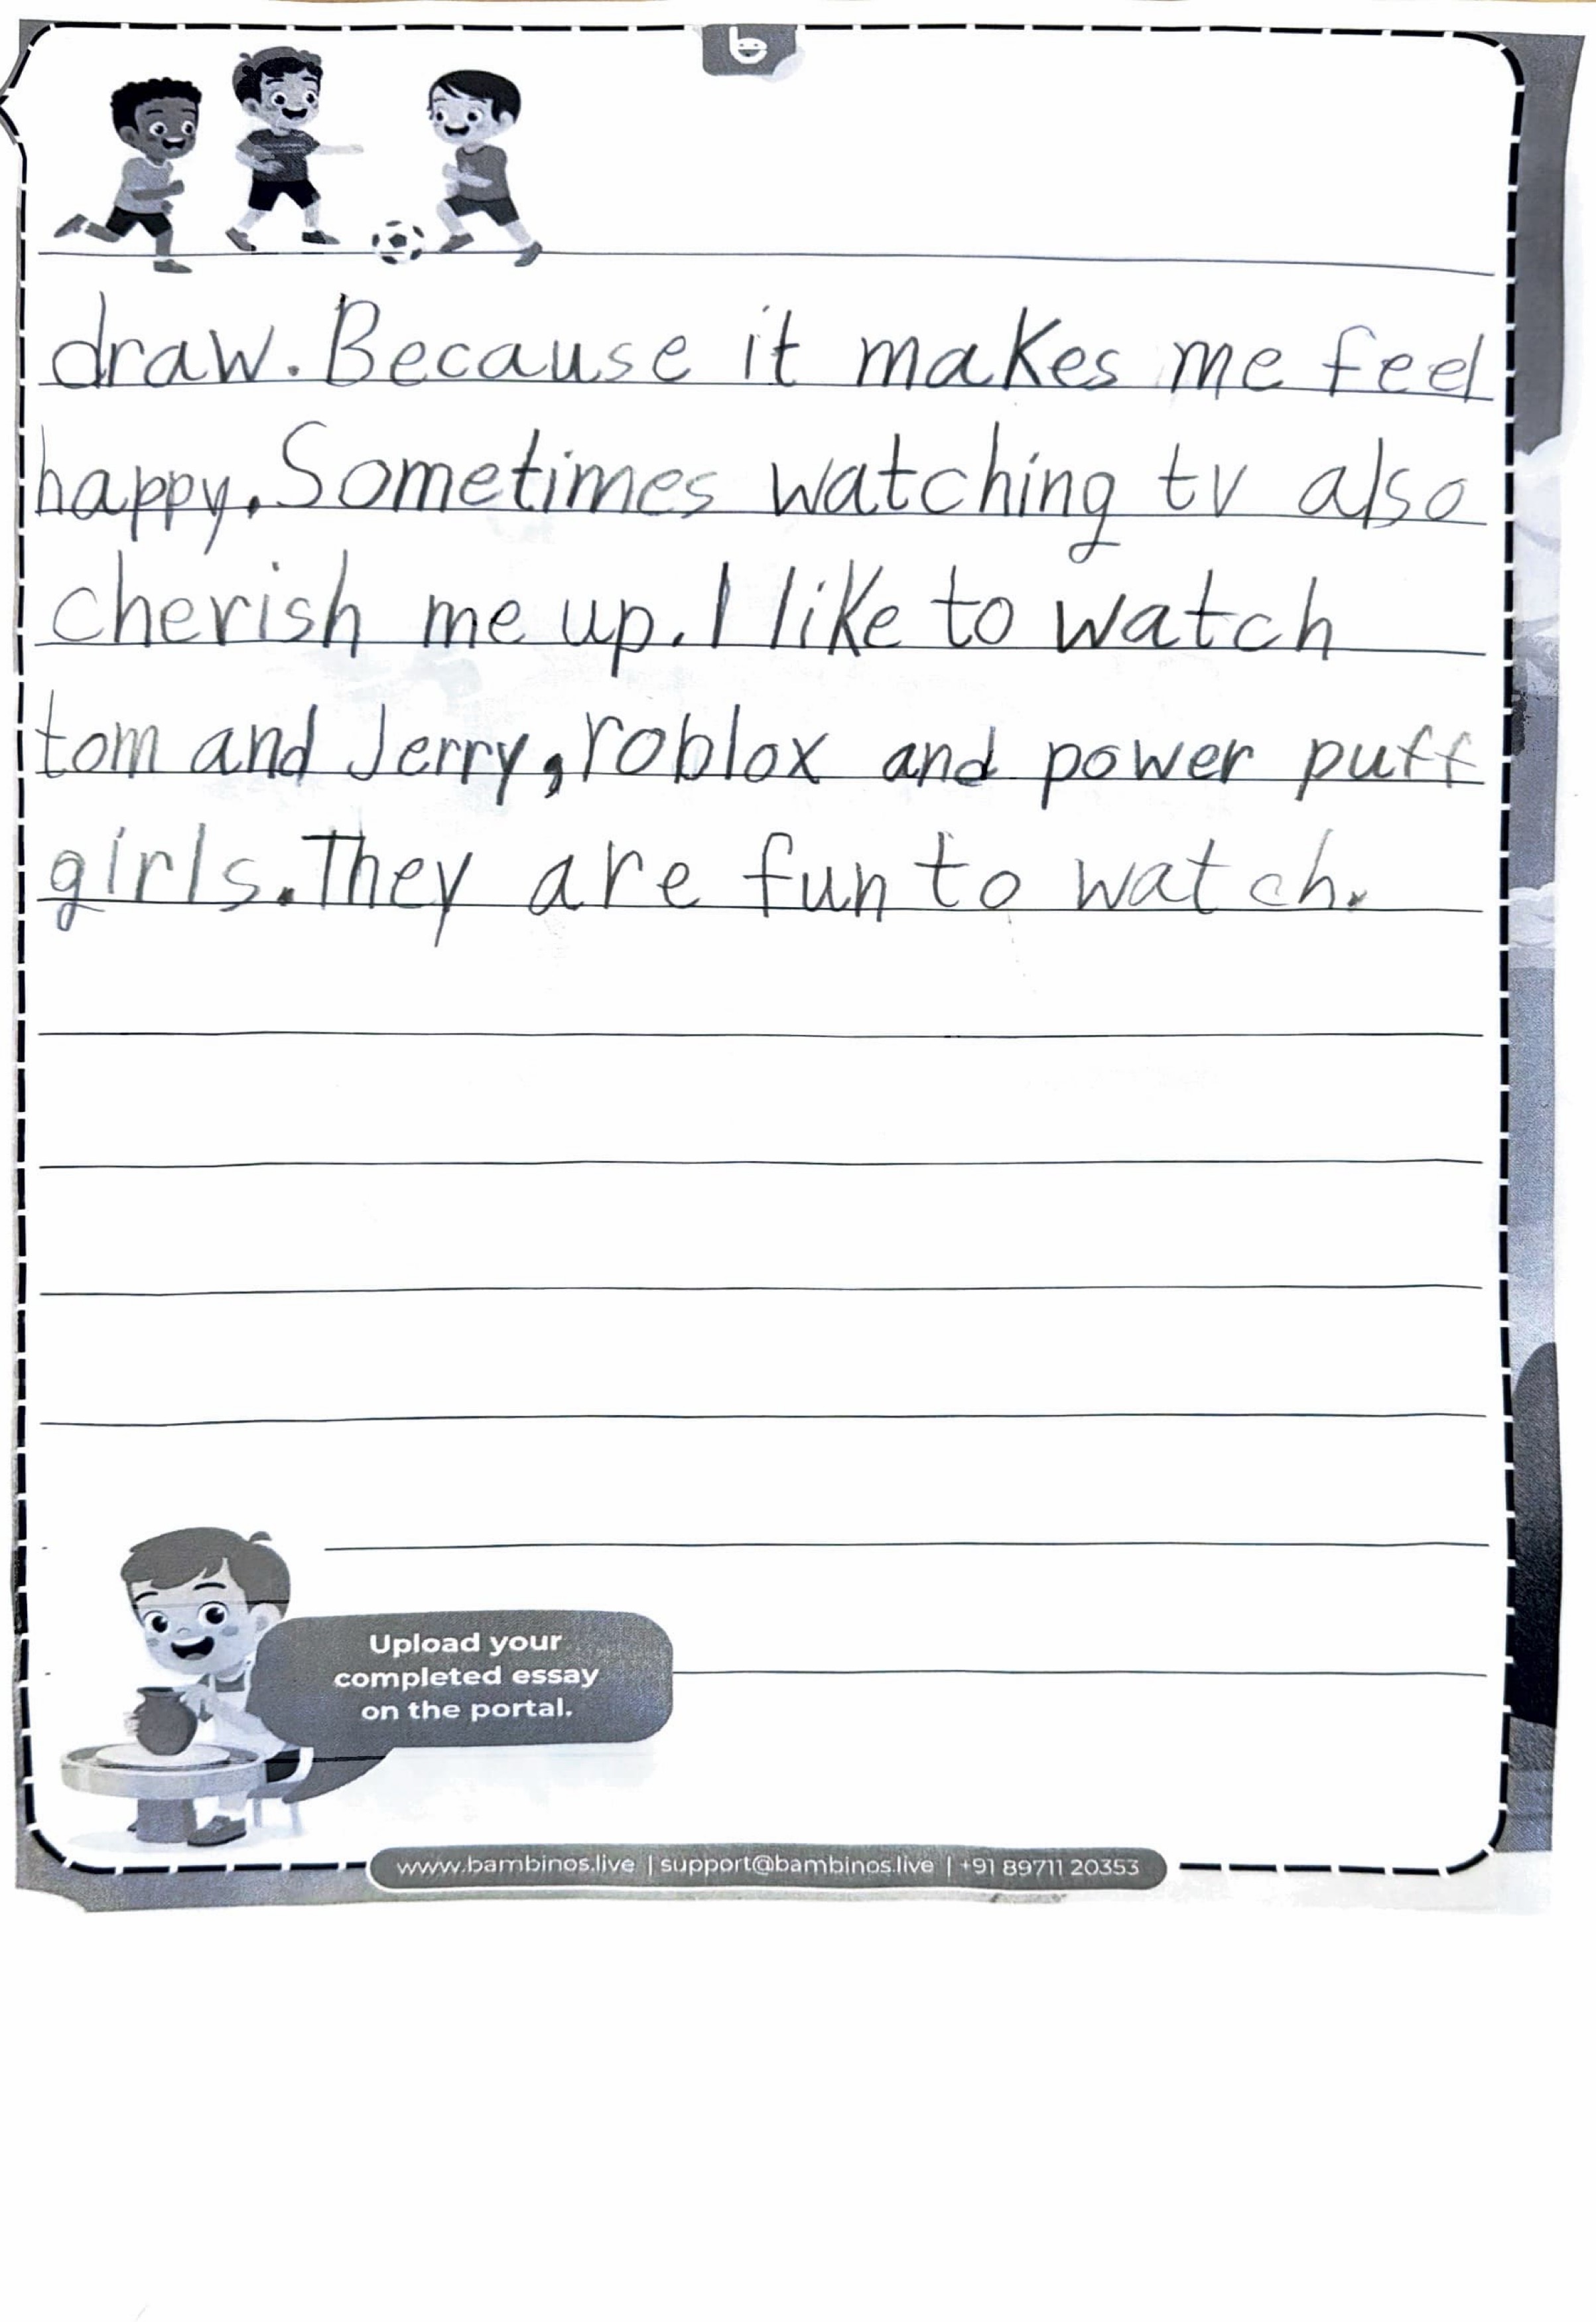 b
draw. Because it makes me feel
happy. Sometimes watching tv also
cherish me up. I like to watch
tom and Jerry, roblox and power puff
girls. They are fun to watch.
Upload your
completed essay
on the portal.
www.bambinos.live | support@bambinos.live | +91 89711 20353